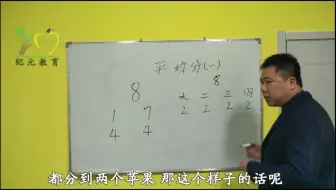 纪元教育
平均分(一)
8 8
1 7 大 二 三 四
4 4 2 2 2 2
都分到两个苹果 那这个样子的话呢